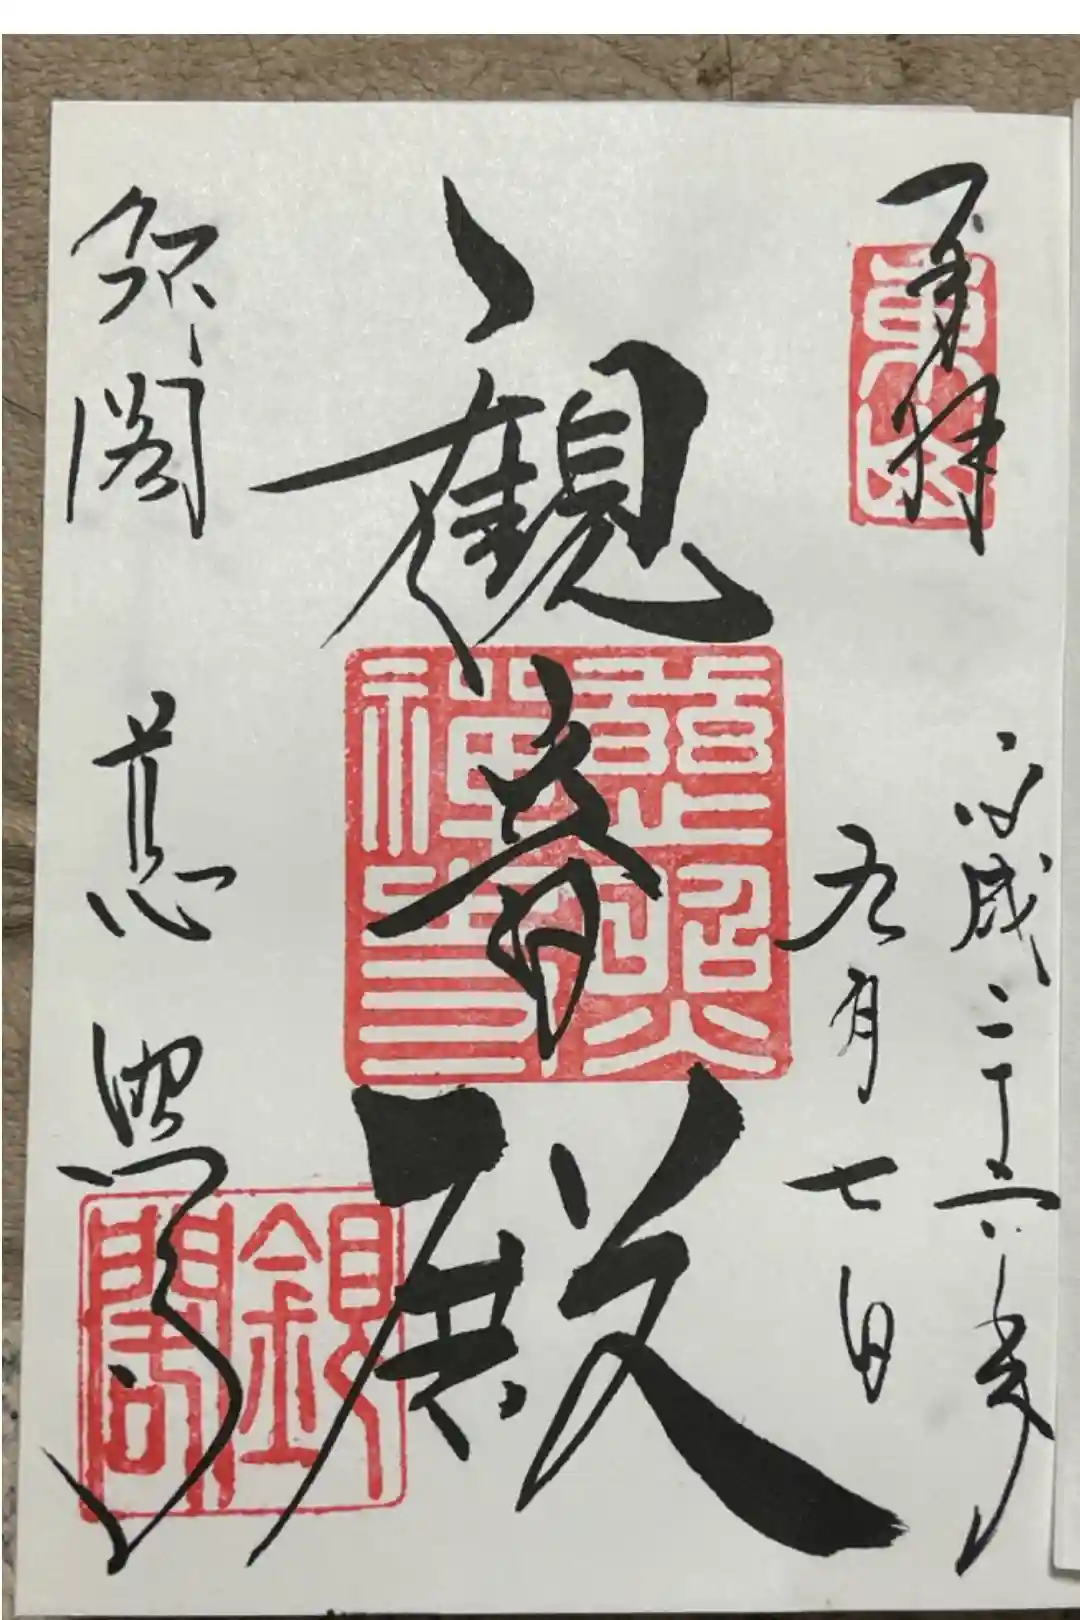 奉拝
東山
平成二十六年
九月七日
観音殿
慈照禅寺
銀閣 慈照寺
銀閣